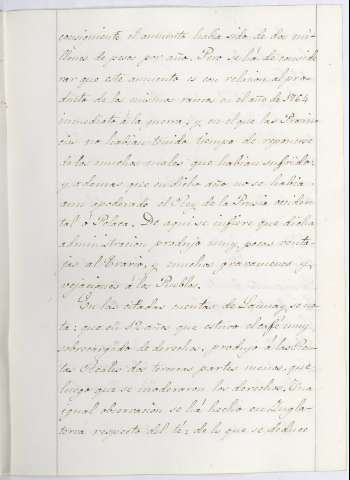 consiguiente el aumento habia sido de dos mi-
llones de pesos por año. Pero se há de conside-
rar que este aumento es con relacion al pro-
ducto de los mismos ramos en el año de 1764
inmediato á la guerra; y en el que las Provin-
cias no habian tenido tiempo de reponerse
de los muchos males que habian sufrido;
y ademas que en dicho año no se habia
aun apoderado el Rey de la Prusia occiden-
tal ó Polaca. De aqui se infiere que dicha
administracion produjo muy pocas venta-
jas al Erario, y muchos gravamenes y
vejaciones á los Pueblos.
En las citadas cuentas de se no-
ta: que en 12 años que estuvo el café muy
sobrecargado de derechos, produjo á las Ren-
tas Reales dos terceras partes menos, que
luego que se moderaron los derechos. Una
igual observacion se há hecho en Ingla-
terra respecto del té: de lo que se deduce